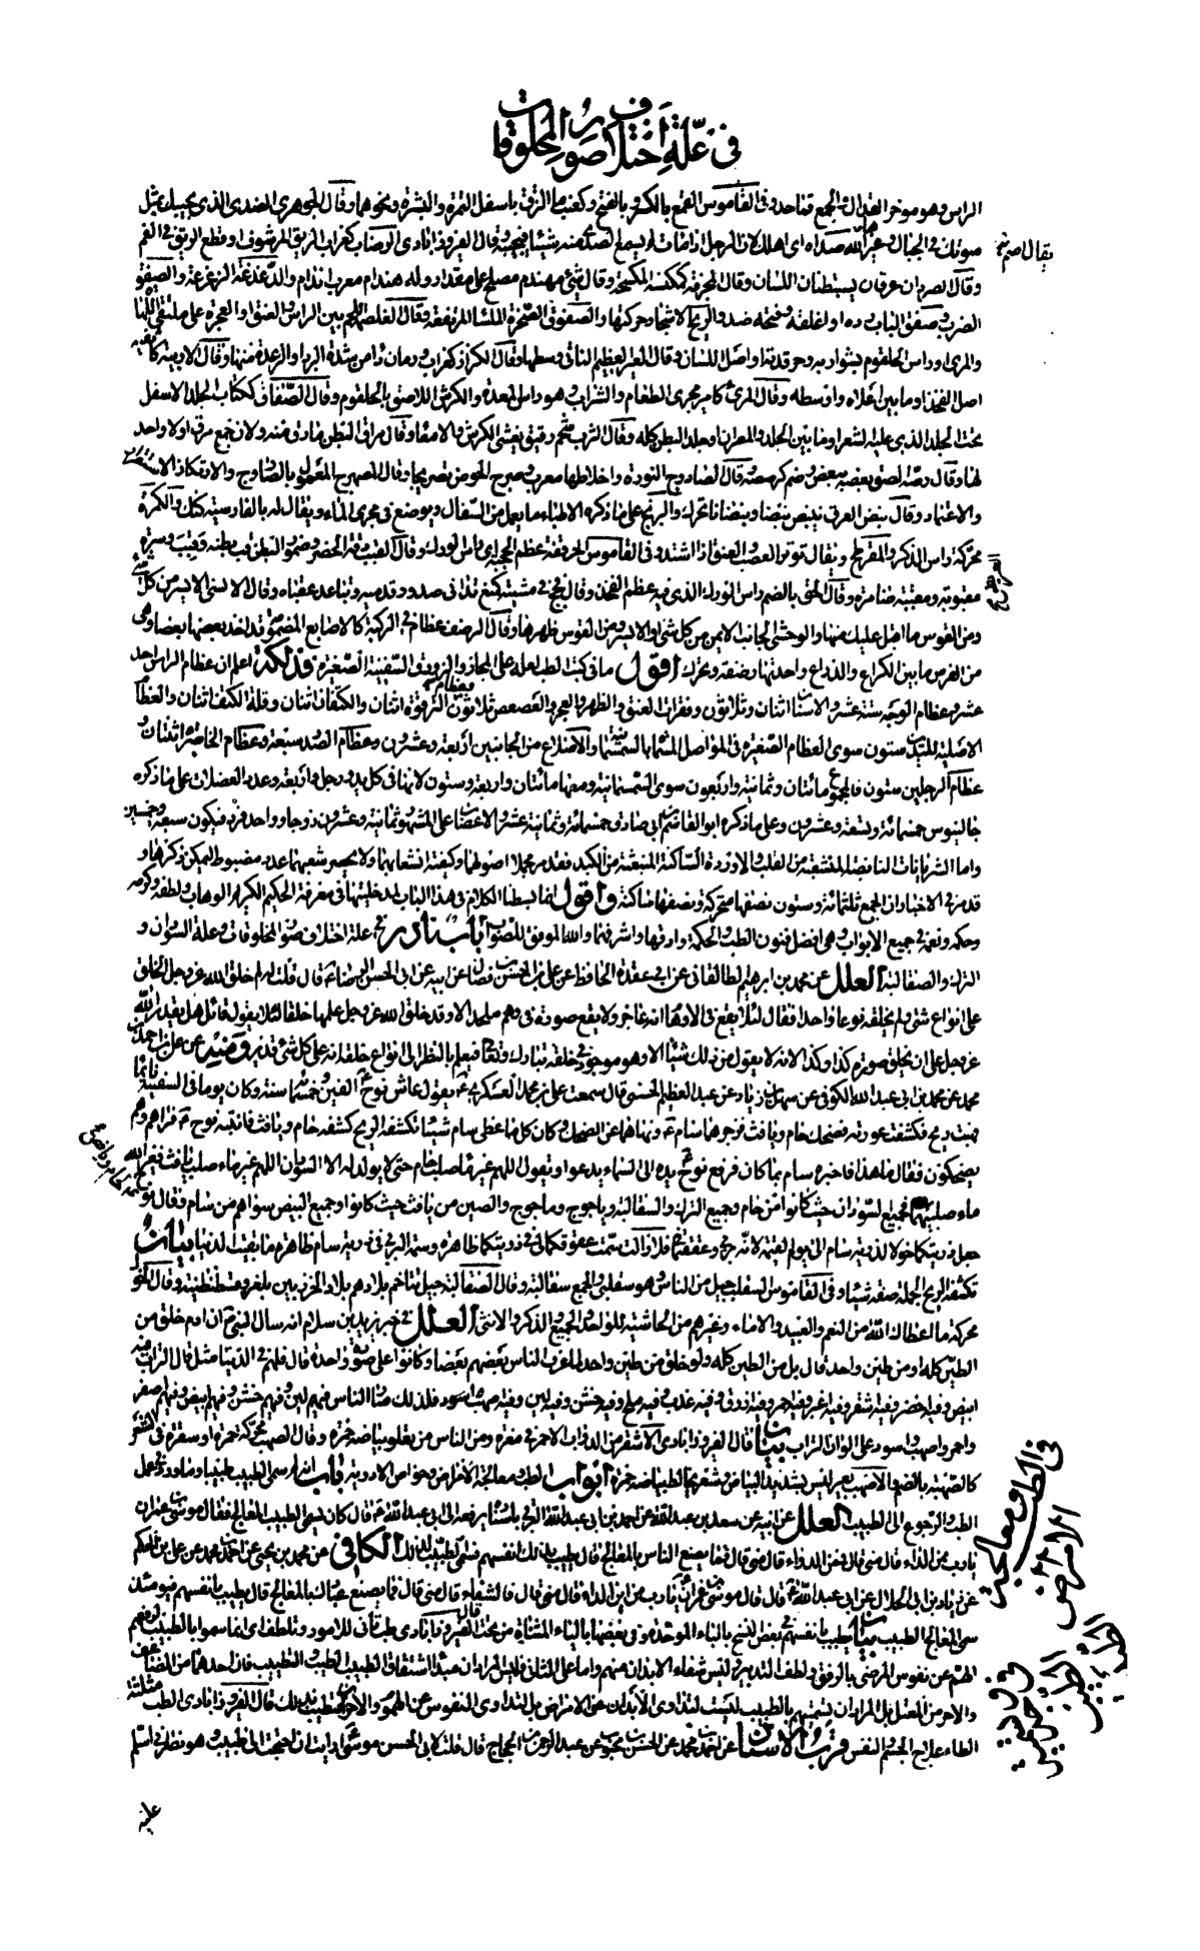 في علة اختلاف صور المخلوقات
الراس وهو موخر القذال والجمع قماحد وفي القاموس القمع بالكسر وبالفتح وكعنب ما التزق باسفل التمرة والبسرة ونحوهما وقال الجوهري الصدى الذي يجيبك بمثل
صوتك في الجبال وغيرها صداه اي اهلكه لان الرجل اذا مات لم يسمع الصدى منه شيئا فيجيبه وقال الفيروزابادي الرضاب كغراب الريق المرشوف او قطع الريق في الفم
وقال الصردان عرقان يستبطنان اللسان وقال المجرفة كمكنسة المكسحة وقال شيء مهندم مصلح على مقدار وله هندام معرب اندام والدغدغة الزعزعة والصفق
الضرب وصفق الباب رده او اغلقه وفتحه ضد والريح الاشجار حركتها والصفوق الصخرة الملساء المرتفعة وقال الغلصمة اللحم بين الراس والعنق او العجرة على ملتقى اللهاة
والمرئ او راس الحلقوم بشواربه وحرقدته او اصل اللسان وقال العير العظيم الناتي وسطها وقال الكزاز كغراب ورمان داء من شدة البرد او الرعدة منها وقال الاربية كاثفية
اصل الفخذ او ما بين اعلاه واوسطه وقال المرئ كامير مجرى الطعام والشراب وهو راس المعدة والكرش اللاصق بالحلقوم وقال الصفاق ككتاب الجلد الاسفل
تحت الجلد الذي عليه الشعر او ما بين الجلد والمصران او جلد البطن كله وقال الثرب شحم رقيق يغشى الكرش والامعاء وقال مراق البطن ما رق منه ولان جمع مرق او لا واحد
لها وقال رصه الصق بعضه ببعض وضم كرصصه وقال الصاروج النورة واخلاطها معرب وصرج الحوض تصريجا وقال المصهرج المعمول بالصاروج والارتكاز الاستقرار
والاعتماد وقال نبض العرق ينبض نبضا ونبضانا تحرك والبربخ على ما ذكره الاطباء ما يعمل من السفال ويوضع في مجرى الماء ويقال له بالفارسية كنك والكمرة
محركة راس الذكر والمفرطح ويقال توتر العصب والعنق اذا اشتد وفي القاموس الحرقفة عظم الحجبة اي راس الورك وقال القبب دقة الخصر وضمور البطن قب بطنه وقبب وسرة
مقبوبة ومقببة ضامرة وقال الحق بالضم راس الورك الذي فيه عظم الفخذ وقال فحج في مشيته كمنع تدانى صدور قدميه وتباعد عقباه وقال الانسي الايسر من كل شيء
ومن القوس ما اقبل عليك منها والوحشي الجانب الايمن من كل شيء او الايسر ومن القوس ظهرها وقال الرضف عظام في الركبة كالاصابع المضمومة قد اخذ بعضها بعضا وهي
من الفرس ما بين الكراع والذراع واحدتها رضفة ويحرك اقول ما في كتب الطب لعله على المجاز والزورق السفينة الصغيرة فذلكة اعلم ان عظام الراس احد
عشر وعظام الوجه ستة عشر والاسنان اثنان وثلاثون وفقرات العنق والظهر والعجز والعصعص ثلاثون الترقوة اثنان والكتفان اثنان وقلة الكتف اثنان والعظام
الاصلية لليدين ستون سوى العظام الصغيرة في المواصل المسماة بالسمسمانية والاضلاع من الجانبين اربعة وعشرون وعظام الصدر سبعة وعظام الخاصرة اثنتان
عظام الرجلين ستون فالمجموع مائتان وثمانية واربعون سوى السمسمانية ومعها مائتان واربعة وستون لانها في كل يد ورجل اربعة وعدد العضلات على ما ذكره
جالينوس خمسمائة وتسعة وعشرون وعلى ما ذكره ابو القاسم بن ابي صادق خمسمائة وثمانية عشر والاعصاب على المشهور ثمانية وعشرون زوجا وواحد فرد فيكون سبعة وخمسين
واما الشريانات النابضة المنشعبة من القلب والاوردة الساكنة المنبعثة من الكبد فقد مر مجملا اصولها وكيفية انشعابها ولا يحصر شعبها عدد مضبوط ليمكن ذكرها و
قد مر في الاخبار ان الجمع ثلثمائة وستون نصفها متحركة ونصفها ساكنة واقول انما بسطنا الكلام في هذا الباب لمدخليتها في معرفة الحكيم الكريم الوهاب ولطفه وكرمه
وحكمه ونعمه في جميع الابواب وهي افضل فنون الطب والحكمة وادقها واشرفها والله الموفق للصواب باب نادر في علة اختلاف صور المخلوقات وعلة السودان و
الترك والصقالبة العلل عن محمد بن ابراهيم الطالقاني عن ابن عقدة الحافظ عن علي بن الحسن بن فضال عن ابيه عن ابي الحسن الرضا ع قال قلت له لم خلق الله عز وجل الخلق
على انواع شتى ولم يخلقه نوعا واحدا فقال لئلا يقع في الاوهام انه عاجز ولا يقع صورة في وهم ملحد الا وقد خلق الله عز وجل عليها خلقا لئلا يقول قائل هل يقدر الله
عز وجل على ان يخلق صورة كذا وكذا لانه لا يقول من ذلك شيئا الا وهو موجود في خلقه تبارك وتعالى فيعلم بالنظر الى انواع خلقه انه على كل شيء قدير ومنه عن علي بن احمد بن
محمد عن محمد بن ابي عبد الله الكوفي عن سهل بن زياد عن عبد العظيم الحسني قال سمعت علي بن محمد العسكري ع يقول عاش نوح الفين وخمسمائة سنة وكان يوما في السفينة نائما
فهبت ريح فكشفت عورته فضحك حام ويافث فزجرهما سام ع ونهاهما عن الضحك وكان كلما غطى سام شيئا تكشفه الريح كشفه حام ويافث فانتبه نوح ع فراهم وهم
يضحكون فقال ما هذا فاخبره سام بما كان فرفع نوح ع يده الى السماء يدعو ويقول اللهم غير ماء صلب حام حتى لا يولد له الا السودان اللهم غير ماء صلب يافث فغير الله
ماء صلبيهما فجميع السودان حيث كانوا من حام وجميع الترك والسقالبة وياجوج وماجوج والصين من يافث حيث كانوا وجميع البيض سواهم من سام وقال نوح
جعل ذريتكما خولا لذرية سام الى يوم القيمة لانه بر بي وعققتماني فلا زالت سمة عقوقكما لي في ذريتكما ظاهرة وسمة البر بي في ذرية سام ظاهرة ما بقيت الدنيا بيان
تكشفه الريح الجملة صفة شيئا وفي القاموس السقلب جيل من الناس وهو سقلبي والجمع سقالبة وقال الصقالبة جيل تتاخم بلادهم بلاد الخزر بين بلغر وقسطنطينية وقال الخول
محركة ما اعطاك الله من النعم والعبيد والاماء وغيرهم من الحاشية للواحد والجميع والذكر والانثى العلل في خبر يزيد بن سلام انه سال النبي ص ان ادم خلق من
الطين كله او من طين واحد قال بل من الطين كله ولو خلق من طين واحد لما عرف الناس بعضهم بعضا وكانوا على صورة واحدة قال فلهم في الدنيا مثل قال التراب فيه
ابيض وفيه اخضر وفيه اشقر وفيه اغبر وفيه احمر وفيه ازرق وفيه عذب وفيه ملح وفيه خشن وفيه لين وفيه اصهب واسود فلذلك صار الناس فيهم لين وفيهم خشن وفيهم ابيض وفيهم اصفر
واحمر واصهب واسود على الوان التراب بيان قال الفيروزابادي الاشقر من الدواب الاحمر في مغرة ومن الناس من يعلو بياضه حمرة وقال الصهب محركة حمرة او شقرة في الشعر
كالصهبة بالضم والاصهب بعير ليس بشديد البياض وشعر يخالط بياضه حمرة ابواب الطب ومعالجة الامراض وخواص الادوية باب انه لم سمي الطبيب طبيبا وما ورد في عمل
الطب والرجوع الى الطبيب العلل عن ابيه عن سعد بن عبد الله عن احمد بن ابي عبد الله البرقي باسناد يرفعه الى ابي عبد الله ع قال كان يسمى الطبيب المعالج فقال موسى بن عمران
يا رب ممن الداء قال مني قال فممن الدواء قال مني قال فما يصنع الناس بالمعالج قال يطيب بذلك انفسهم فسمي الطبيب لذلك الكافي عن محمد بن يحيى عن احمد بن محمد عن علي بن الحكم
عن زياد بن ابي الحلال عن ابي عبد الله ع قال قال موسى بن عمران يا رب من اين الداء قال مني قال فالشفاء قال مني قال فما يصنع عبادك بالمعالج قال يطيب بانفسهم فيومئذ
سمي المعالج الطبيب بيان يطيب بانفسهم في بعض النسخ بالباء الموحدة وفي بعضها بالياء المثناة من تحت قال الفيروزابادي طب تاني للامور وتلطف اي انما سموا بالطبيب لرفعهم
الهم عن نفوس المرضى بالرفق ولطف التدبير وليس شفاء الابدان منهم واما على الثاني فليس المراد ان مبدا اشتقاق الطبيب الطيب والتطييب فان احدهما من المضاعف
والاخر من المعتل بل المراد ان تسميتهم بالطبيب ليست لتداوي الابدان عن الامراض بل لتداوي النفوس عن الهموم والاحزان فتطيب بذلك قال الفيروزابادي الطب مثلثة
الطاء علاج الجسم والنفس قرب الاسناد عن احمد بن محمد عن الحسن بن محبوب عن عبد الرحمن بن الحجاج قال قلت لابي الحسن موسى ع ارايت ان احتجت الى طبيب وهو نصراني اسلم
عليه
في الطب ومعالجة
الامراض